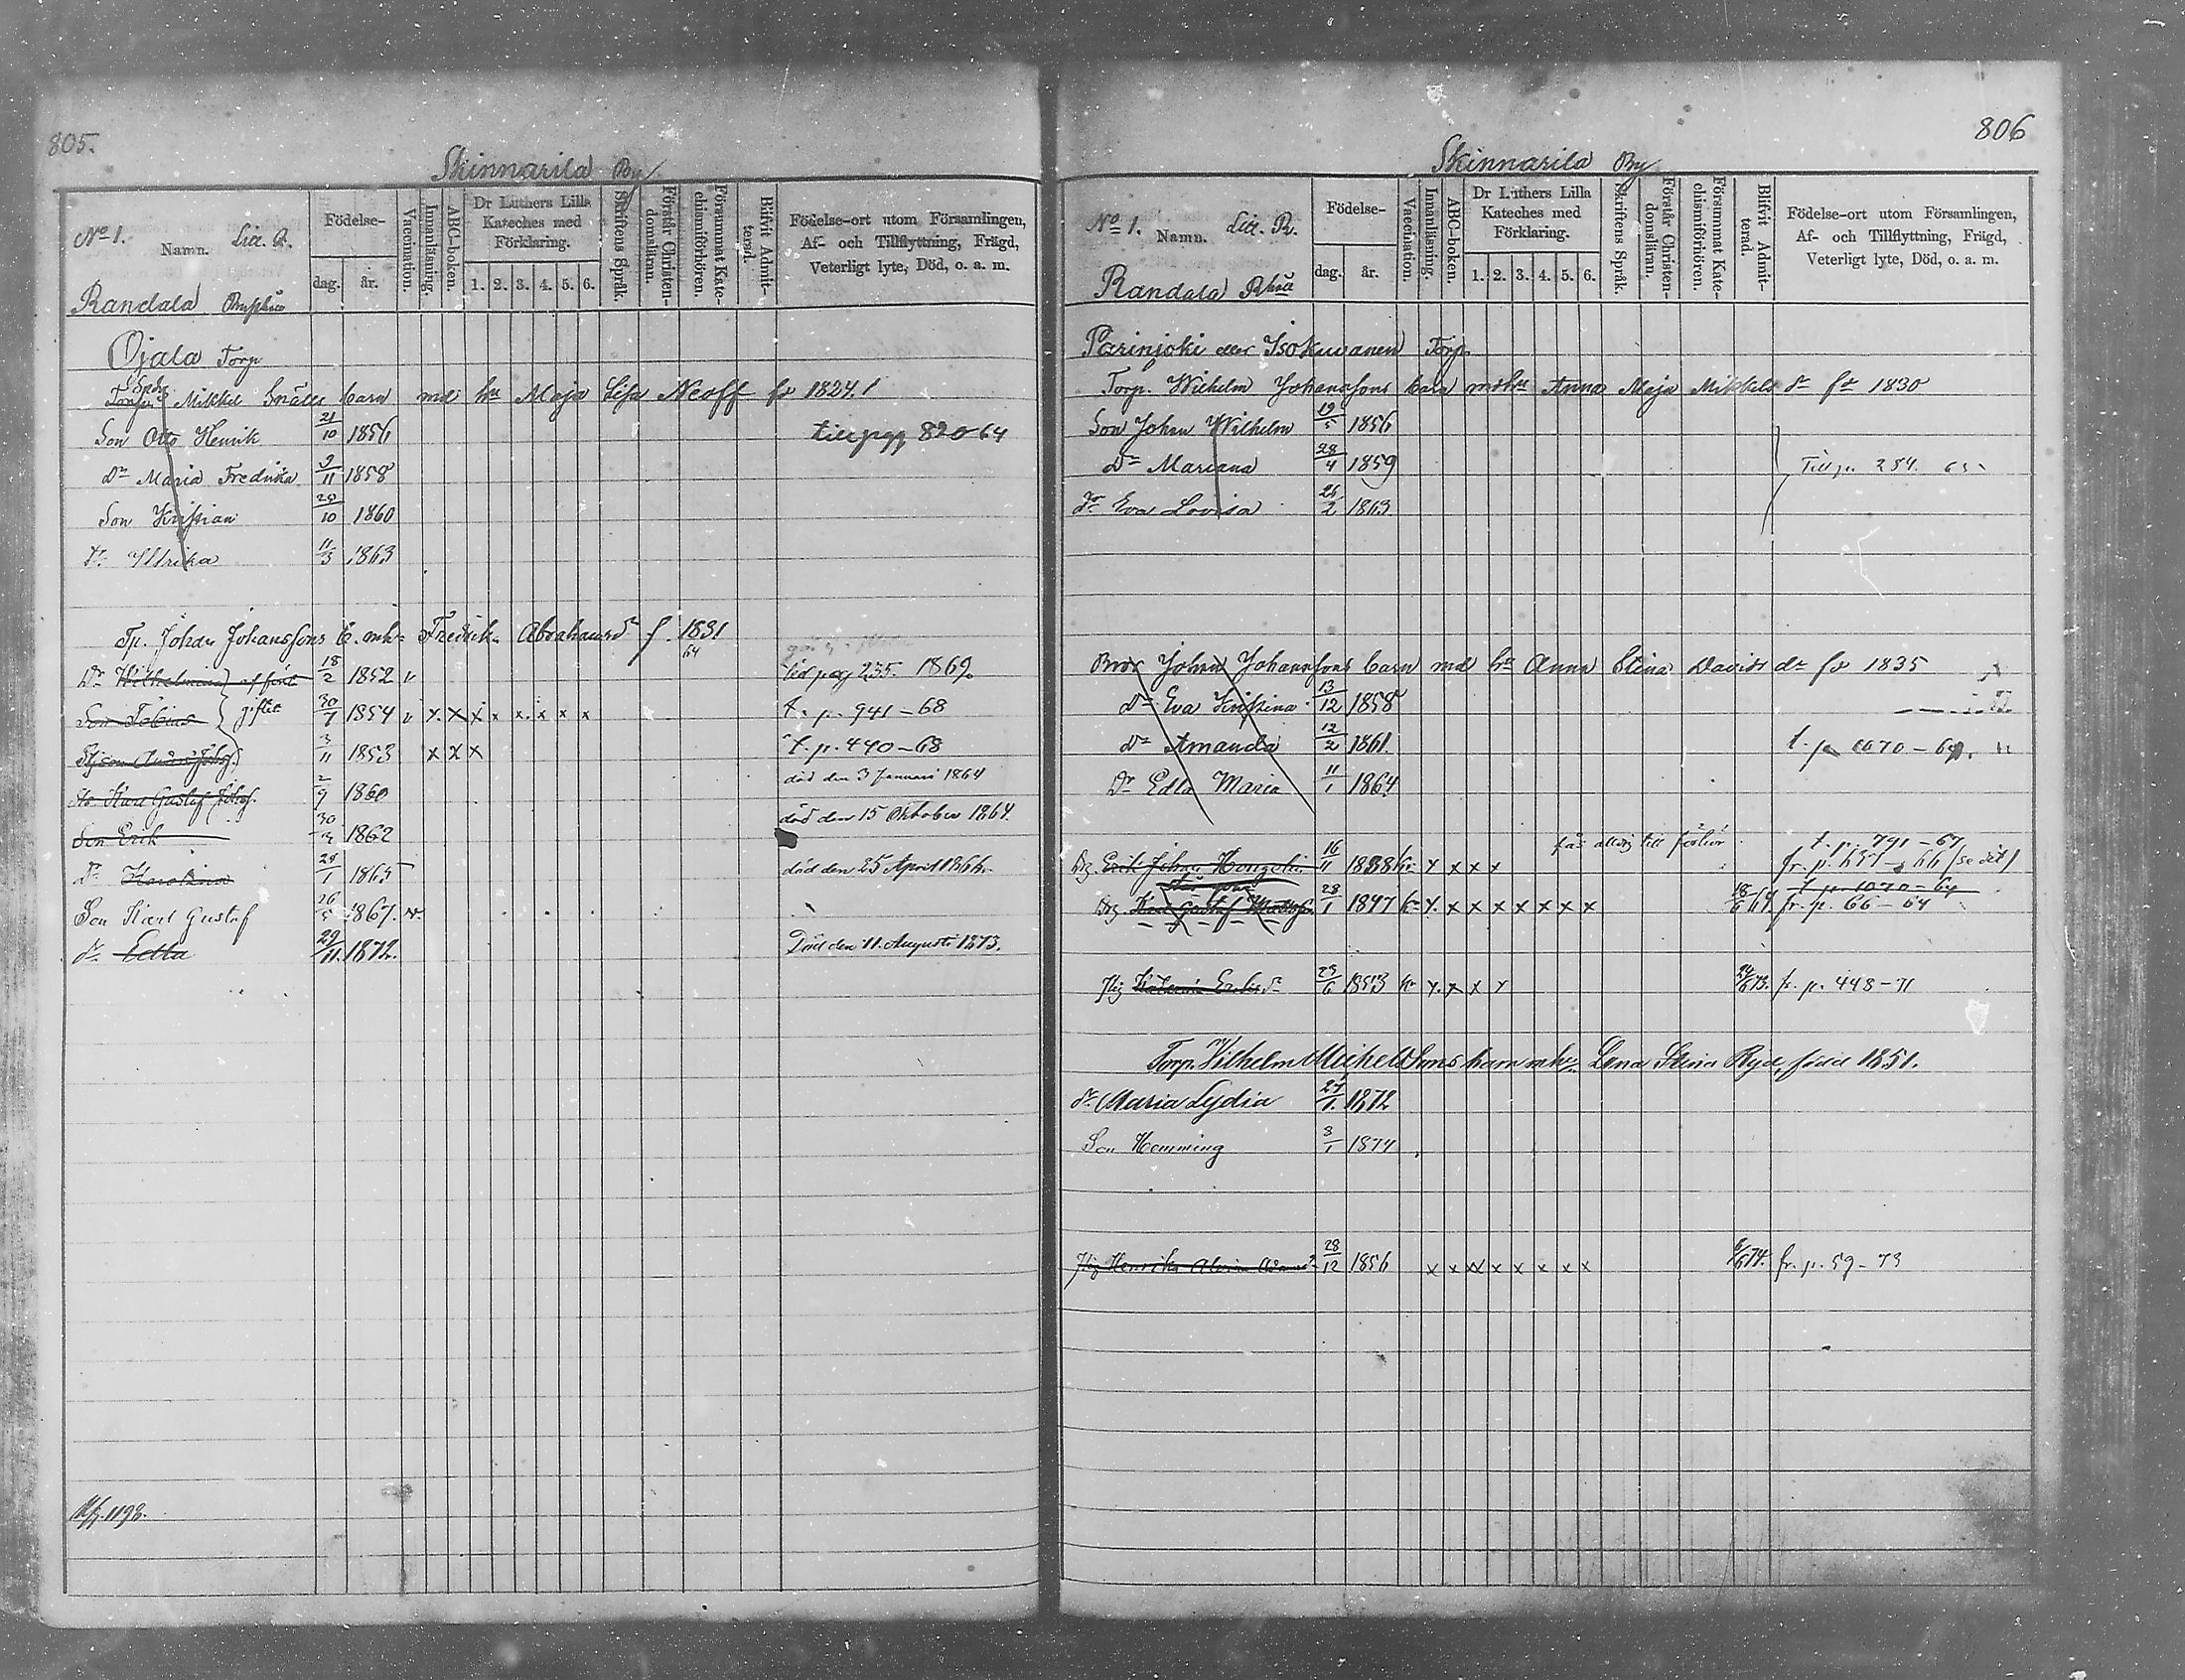 805.
Skinnarila By
No 1. Namn. Litt. R.
Födelse-
dag. år.
Vaccination.
Innanläsning.
ABC-boken.
Dr Luthers Lilla Kateches med Förklaring.
1. 2. 3. 4. 5. 6.
Skriftens Språk.
Förstår Christendomsläran.
Försummat Katechismiförhören.
Blifvit Admitterad.
Födelse-ort utom Församlingen,
Af- och Tillflyttning, Frägd,
Veterligt lyte, Död, o. a. m.
Randala
Ojala Torp
Mikkel barn md hu Maja Lisa Neoff fö 1824
Son Otto Henrik 21/10 1856 till pag 820 64
Dr Maria Fredrika 9/11 1858
Son Kristian 29/10 1860
Dr Ulrika 11/3 1863
Tp. Johan Johanssons b. mh Fredrika Abrahamsdr f. 1831
Dr Wilhelmina 18/2 1852 v 235. 1869.
Son Tobias giftet 30/7 1854 v x x x x x x x x t. p. 941-68
3/11 1853 x x x t. p. 440-68
Karl Gustaf 2/9 1860 död den 3 Januari 1864
Son Erik 30/3 1862 död den 15 Oktober 1864.
Dr Karolina 24/1 1865 död den 25 April 1866.
Son Karl Gustaf 26/5 1867. v.
dr Edla 29/11. 1872. Död den 11. Augusti 1873.
1198.
806
Skinnarila By
No 1. Namn. Litt. R.
Födelse-
dag. år.
Vaccination.
Innanläsning.
ABC-boken.
Dr Luthers Lilla Kateches med Förklaring.
1. 2. 3. 4. 5. 6.
Skriftens Språk.
Förstår Christendomsläran.
Försummat Katechismiförhören.
Blifvit Admitterad.
Födelse-ort utom Församlingen,
Af- och Tillflyttning, Frägd,
Veterligt lyte, Död, o. a. m.
Randala
Parinjoki eller Isokuvanen Torp.
Torp. Wilhelm Johanssons barn m hu Anna Maja Mikkels dr fö 1830
Son Johan Wilhelm 19/5 1856
Dr Mariana 28/4 1859 Till p. 254.
Dr Eva Lovisa 26/2 1863
Bror Johan Johanssons barn md hu Anna Stina Davids dr fö 1835
Dr Eva Kristina 13/12 1858
Dr Amanda 12/2 1861. t. p. 1070-64.
Dr Edla Maria 11/1 1864
får aldrig till förhör t. p. 791-67
Drg. Erik Johan 16/11 1838 x x x fr. p. 657-66 (se dit)
t. p. 1070-64
Drg. Karl Gustaf 28/1 1847 x x x x x x x 18/6 64 fr. p. 66-64
Pig Eriksdr 23/6 1853 x x 24/6 73. fr. p. 448-71
Torp. Wilhelm Michelssons barn mhu. Lena Stina Ryd, född 1851.
dr Maria Lydia 27/1. 1872
Son Hemming 3/1 1874
Pig Henrika 28/12 1856 x x x x x x x x 6/6 74. fr. p. 59-73